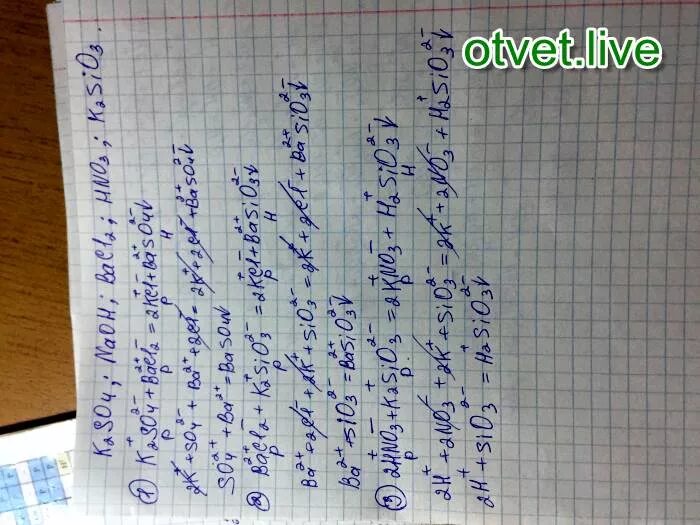 otvet.live
K₂SO₄; NaOH; BaCl₂; HNO₃; K₂SiO₃.
① K₂⁺SO₄²⁻ + Ba²⁺Cl₂⁻ = 2K⁺Cl⁻ + Ba²⁺SO₄²⁻↓
р р р Н
2K⁺ + SO₄²⁻ + Ba²⁺ + 2Cl⁻ = 2K⁺ + 2Cl⁻ + Ba²⁺SO₄²⁻↓
SO₄²⁻ + Ba²⁺ = BaSO₄↓
② Ba²⁺Cl₂⁻ + K₂⁺SiO₃²⁻ = 2K⁺Cl⁻ + Ba²⁺SiO₃²⁻↓
р р р Н
Ba²⁺ + 2Cl⁻ + 2K⁺ + SiO₃²⁻ = 2K⁺ + 2Cl⁻ + Ba²⁺SiO₃²⁻↓
Ba²⁺ + SiO₃²⁻ = Ba²⁺SiO₃²⁻↓
③ 2H⁺NO₃⁻ + K₂⁺SiO₃²⁻ = 2K⁺NO₃⁻ + H₂⁺SiO₃²⁻↓
р р. р Н
2H⁺ + 2NO₃⁻ + 2K⁺ + SiO₃²⁻ = 2K⁺ + 2NO₃⁻ + H₂⁺SiO₃²⁻↓
2H⁺ + SiO₃²⁻ = H₂⁺SiO₃²⁻↓